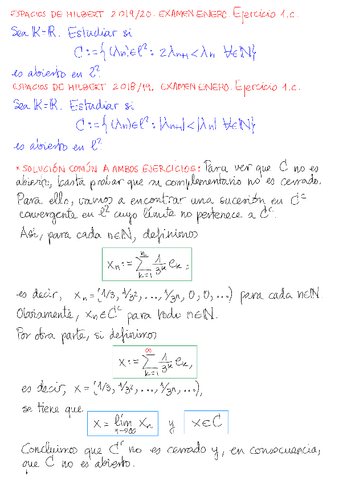 ESPACIOS DE HILBERT 2019/20. EXAMEN ENERO. Ejercicio 1.c.
Sea K=R. Estudiar si
C:={(λn)∈ℓ²: 2λn+1<λn ∀n∈N}
es abierto en ℓ².
ESPACIOS DE HILBERT 2018/19. EXAMEN ENERO. Ejercicio 1.c.
Sea K=R. Estudiar si
C:={(λn)∈ℓ²: |λn+1|<|λn| ∀n∈N}
es abierto en ℓ²
* SOLUCIÓN COMÚN A AMBOS EJERCICIOS: Para ver que C no es
abierto, basta probar que su complementario no es cerrado.
Para ello, vamos a encontrar una sucesión en Cᶜ
convergente en ℓ² cuyo límite no pertenece a Cᶜ.
Así, para cada n∈N, definimos
xn:=∑_{k=1}^{n} 1/3ᵏ eₖ,
es decir, xn=(1/3, 1/3², ..., 1/3ⁿ, 0, 0, ...) para cada n∈N.
Obviamente, xn∈Cᶜ para todo n∈N.
Por otra parte, si definimos
x:=∑_{k=1}^{∞} 1/3ᵏ eₖ,
es decir, x=(1/3, 1/3², ..., 1/3ⁿ, ...),
se tiene que
x=lim_{n→∞} xn y x∈C
Concluimos que Cᶜ no es cerrado y, en consecuencia,
que C no es abierto.